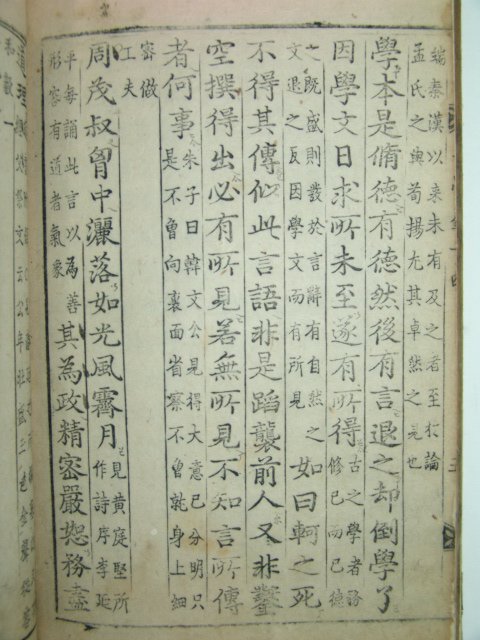 端秦漢以來未有及之者至於論
孟氏之與荀揚尤其卓然之見也
學本是脩德有德然後有言退之却倒學了
因學文日求所未至遂有所得古之學者務
修己而已德
之旣盛則發於言辭有自然之
文退之反因學文而有所見如曰軻之死
不得其傳似此言語非是蹈襲前人又非鑿
空撰得出必有所見若無所見不知言所傳
者何事朱子曰韓文公見得大意已分明只
是不曾向裏面省察不曾就身上細
密做
工夫
周茂叔胷中灑落如光風霽月見黄庭堅所
作詩序李延
平每誦此言以為善
形容有道者氣象其為政精密嚴恕務盡
道理